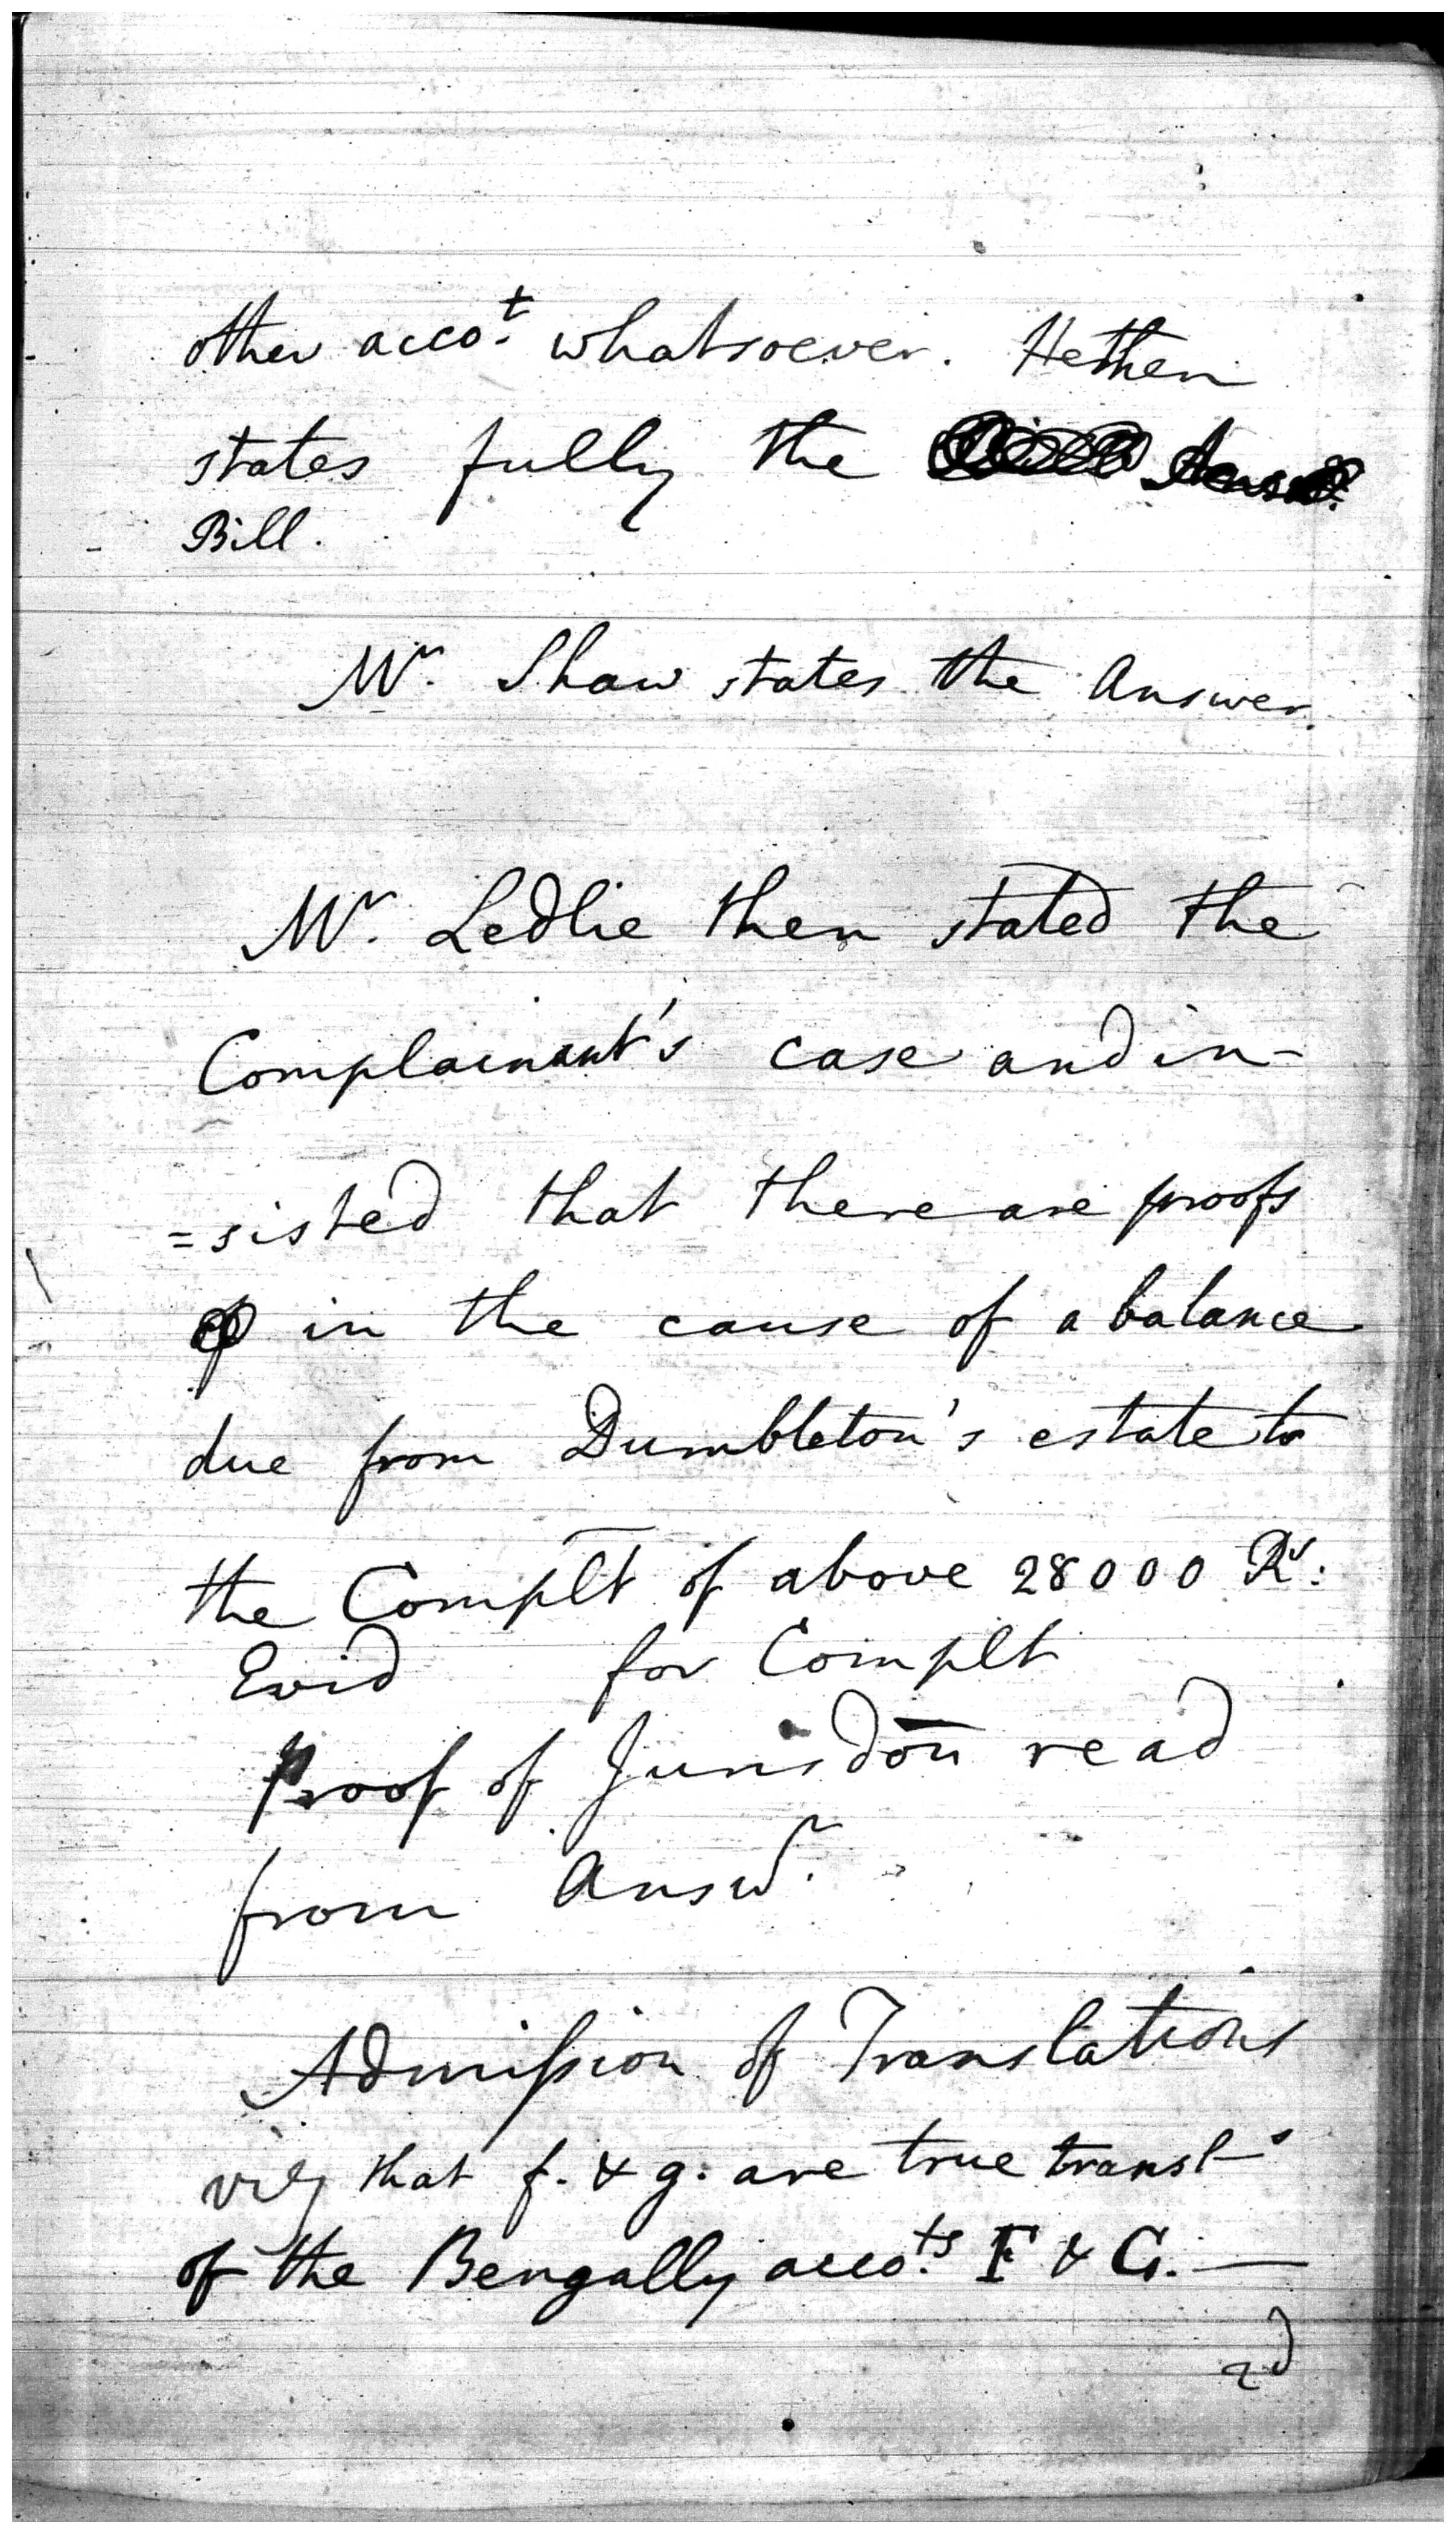 other acco.t whatsoever. He then
states fully the
Bill.
Mr. Shaw states the Answer.
Mr. Ledlie then stated the
Complainant's case and in-
=sisted that there are proofs
in the cause of a balance
due from Dumbleton's estate to
the Complt of above 28000 Rs:
Evid for Complt
Proof of Jurisdon read
from Answr.
Admission of Translations
viz that f. & g. are true transl-s
of the Bengally acco.ts F & G. —
2d